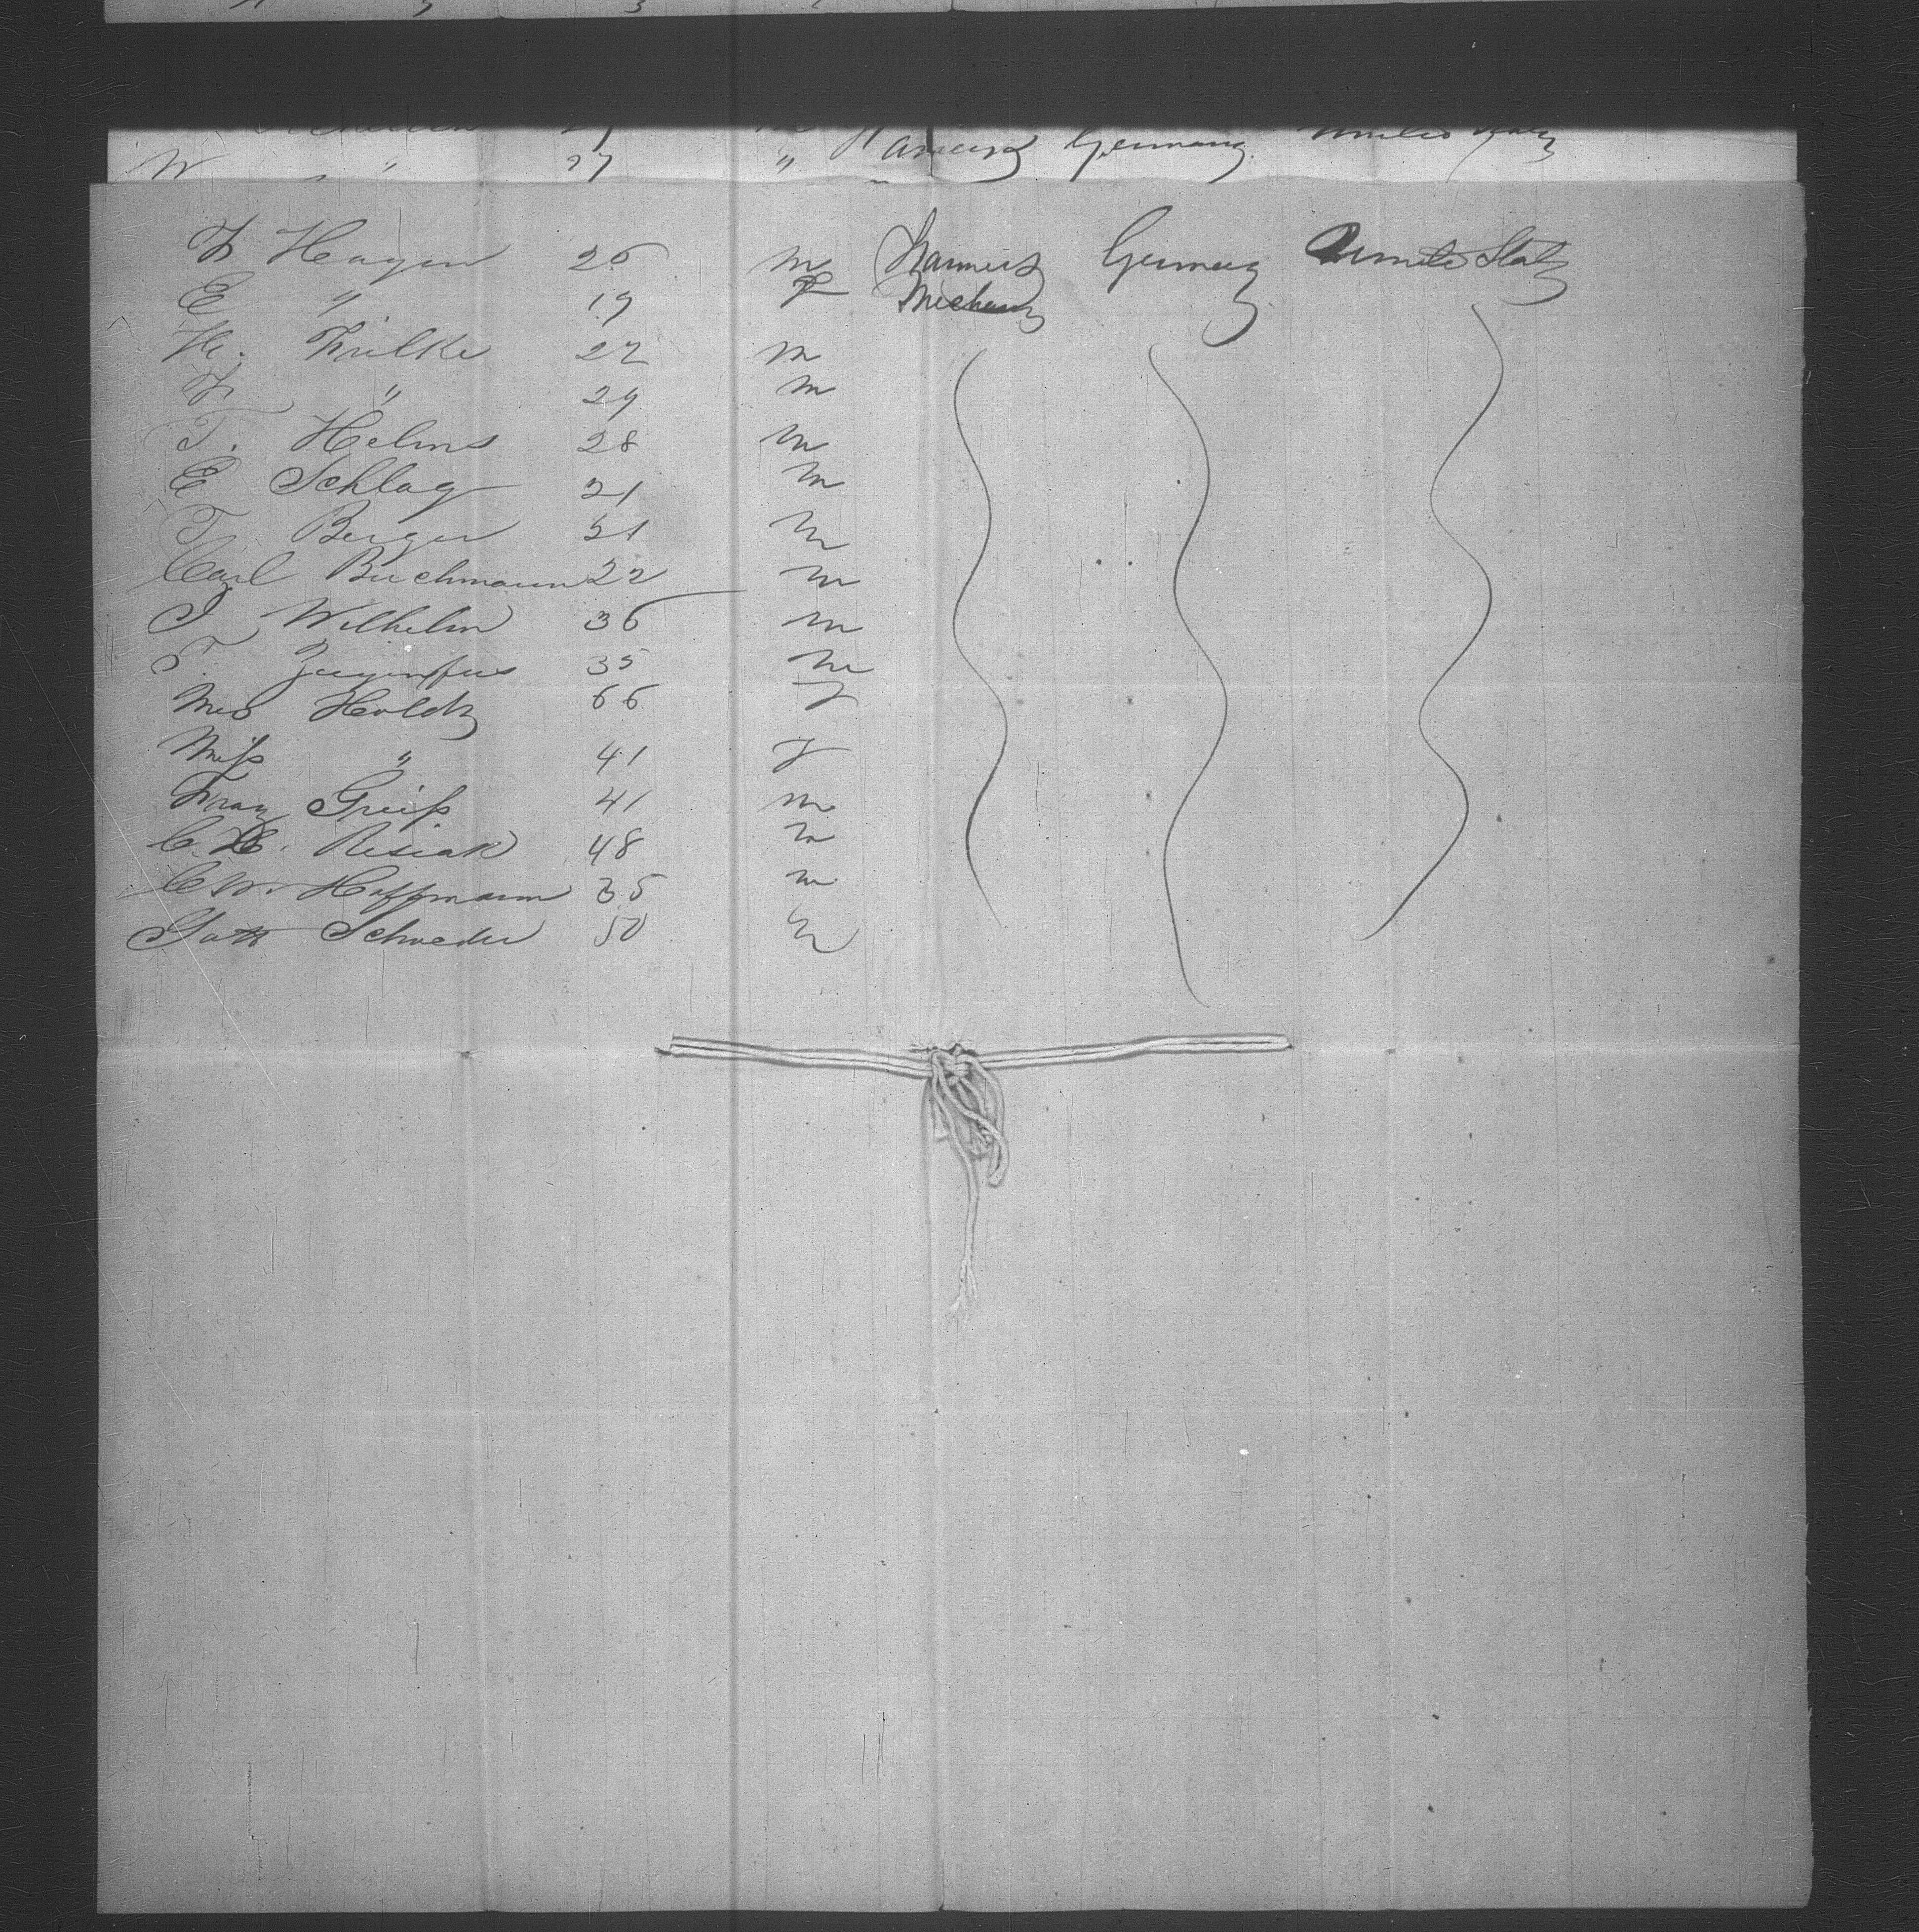 W " 27 " Farmers Germany United States
F Hagen 26 m Farmers Germany United States
E " 19 f Mechan
H. Thielke 22 m
F. " 24 m
T. Helms 28 m
E Schlag 21 m
T. Berger 51 m
Carl Buchmann 22 m
J Wilhelm 36 m
T. 35 m
Mrs Holdtz 66 f
Miss " 41 f
Franz Greiß 41 m
C. H. Resiak 48 m
C W. Hoffmann 35 m
Gott Schroeder 50 m